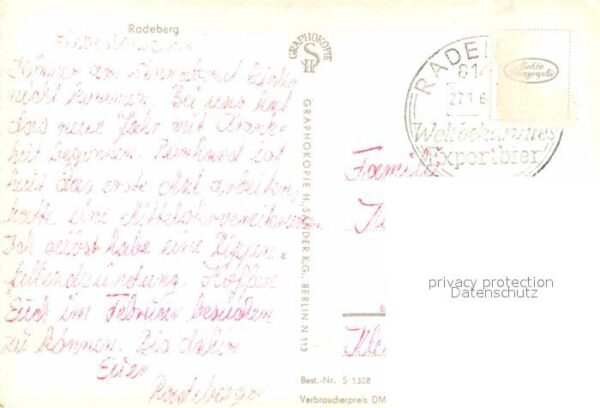 Radeberg
Können am Sonnabend leider
nicht kommen. Bei uns hat
das neue Jahr mit Krank-
heit begonnen. Reinhard ist
heut das erste Mal arbeiten,
hatte eine Mittelohrvereiterung
Ich selbst habe eine Rippen-
fellendzündung. Hoffen
Euch im Februar besuchen
zu können. Bis dahin
Eure
Radeberger
GRAPHOKOPIE
SH
GRAPHOKOPIE H. SANDER K.G., BERLIN N 113
Best.-Nr. S 1308
Verbraucherpreis DM
RADEB
814
27.1.6
Weltbekanntes
Exportbier
Echte
Photographie
Famili
Kle
privacy protection
Datenschutz